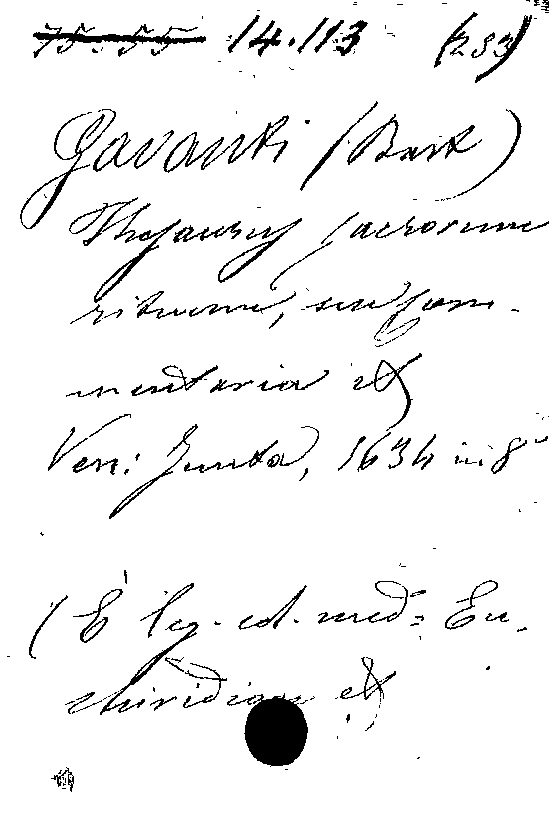 75.55 14.113 (283)
Gavanti (Bart)
Thesaurus sacrorum
rituum, seu Com-
mentaria et
Ven: Junta, 1634 in 8°
(È leg. col. med= En-
chiridion et